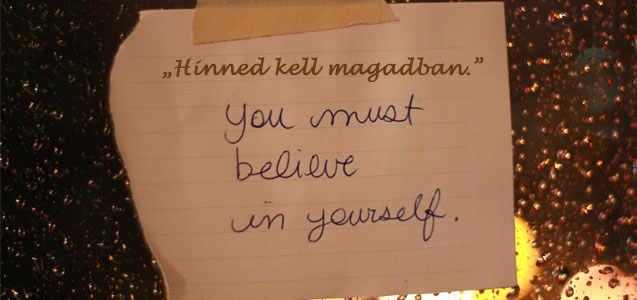 „Hinned kell magadban.”
you must
believe
in yourself.